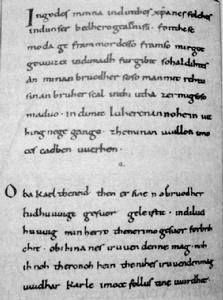 Ingodes minna indinthes xpanes folches
indunser bedhero gealtnissi. fonthese
moda ge frammordesso framso mirgot
geuuizci indimadh furgibit sohaldihtes
an minan bruodher soso manmit rehtu
sinan bruher scal inthi utha zermigsoso
maduo. indimit luheren in noheiniut
hing nege gango. theminan uuillon imo
ces cadhen uuerhen.
Oba Karl theneid then er sine nobruodher
ludhuuuige gesuor geleistit. indilud
huuuig min herro thenerimo gesuor forbrih
chit. obihina nes iruuendenne mag. noh
ih noh theronoh hein thenihes iruuendenmag
uuidhar Karle imoce follus tine uuirdhit.